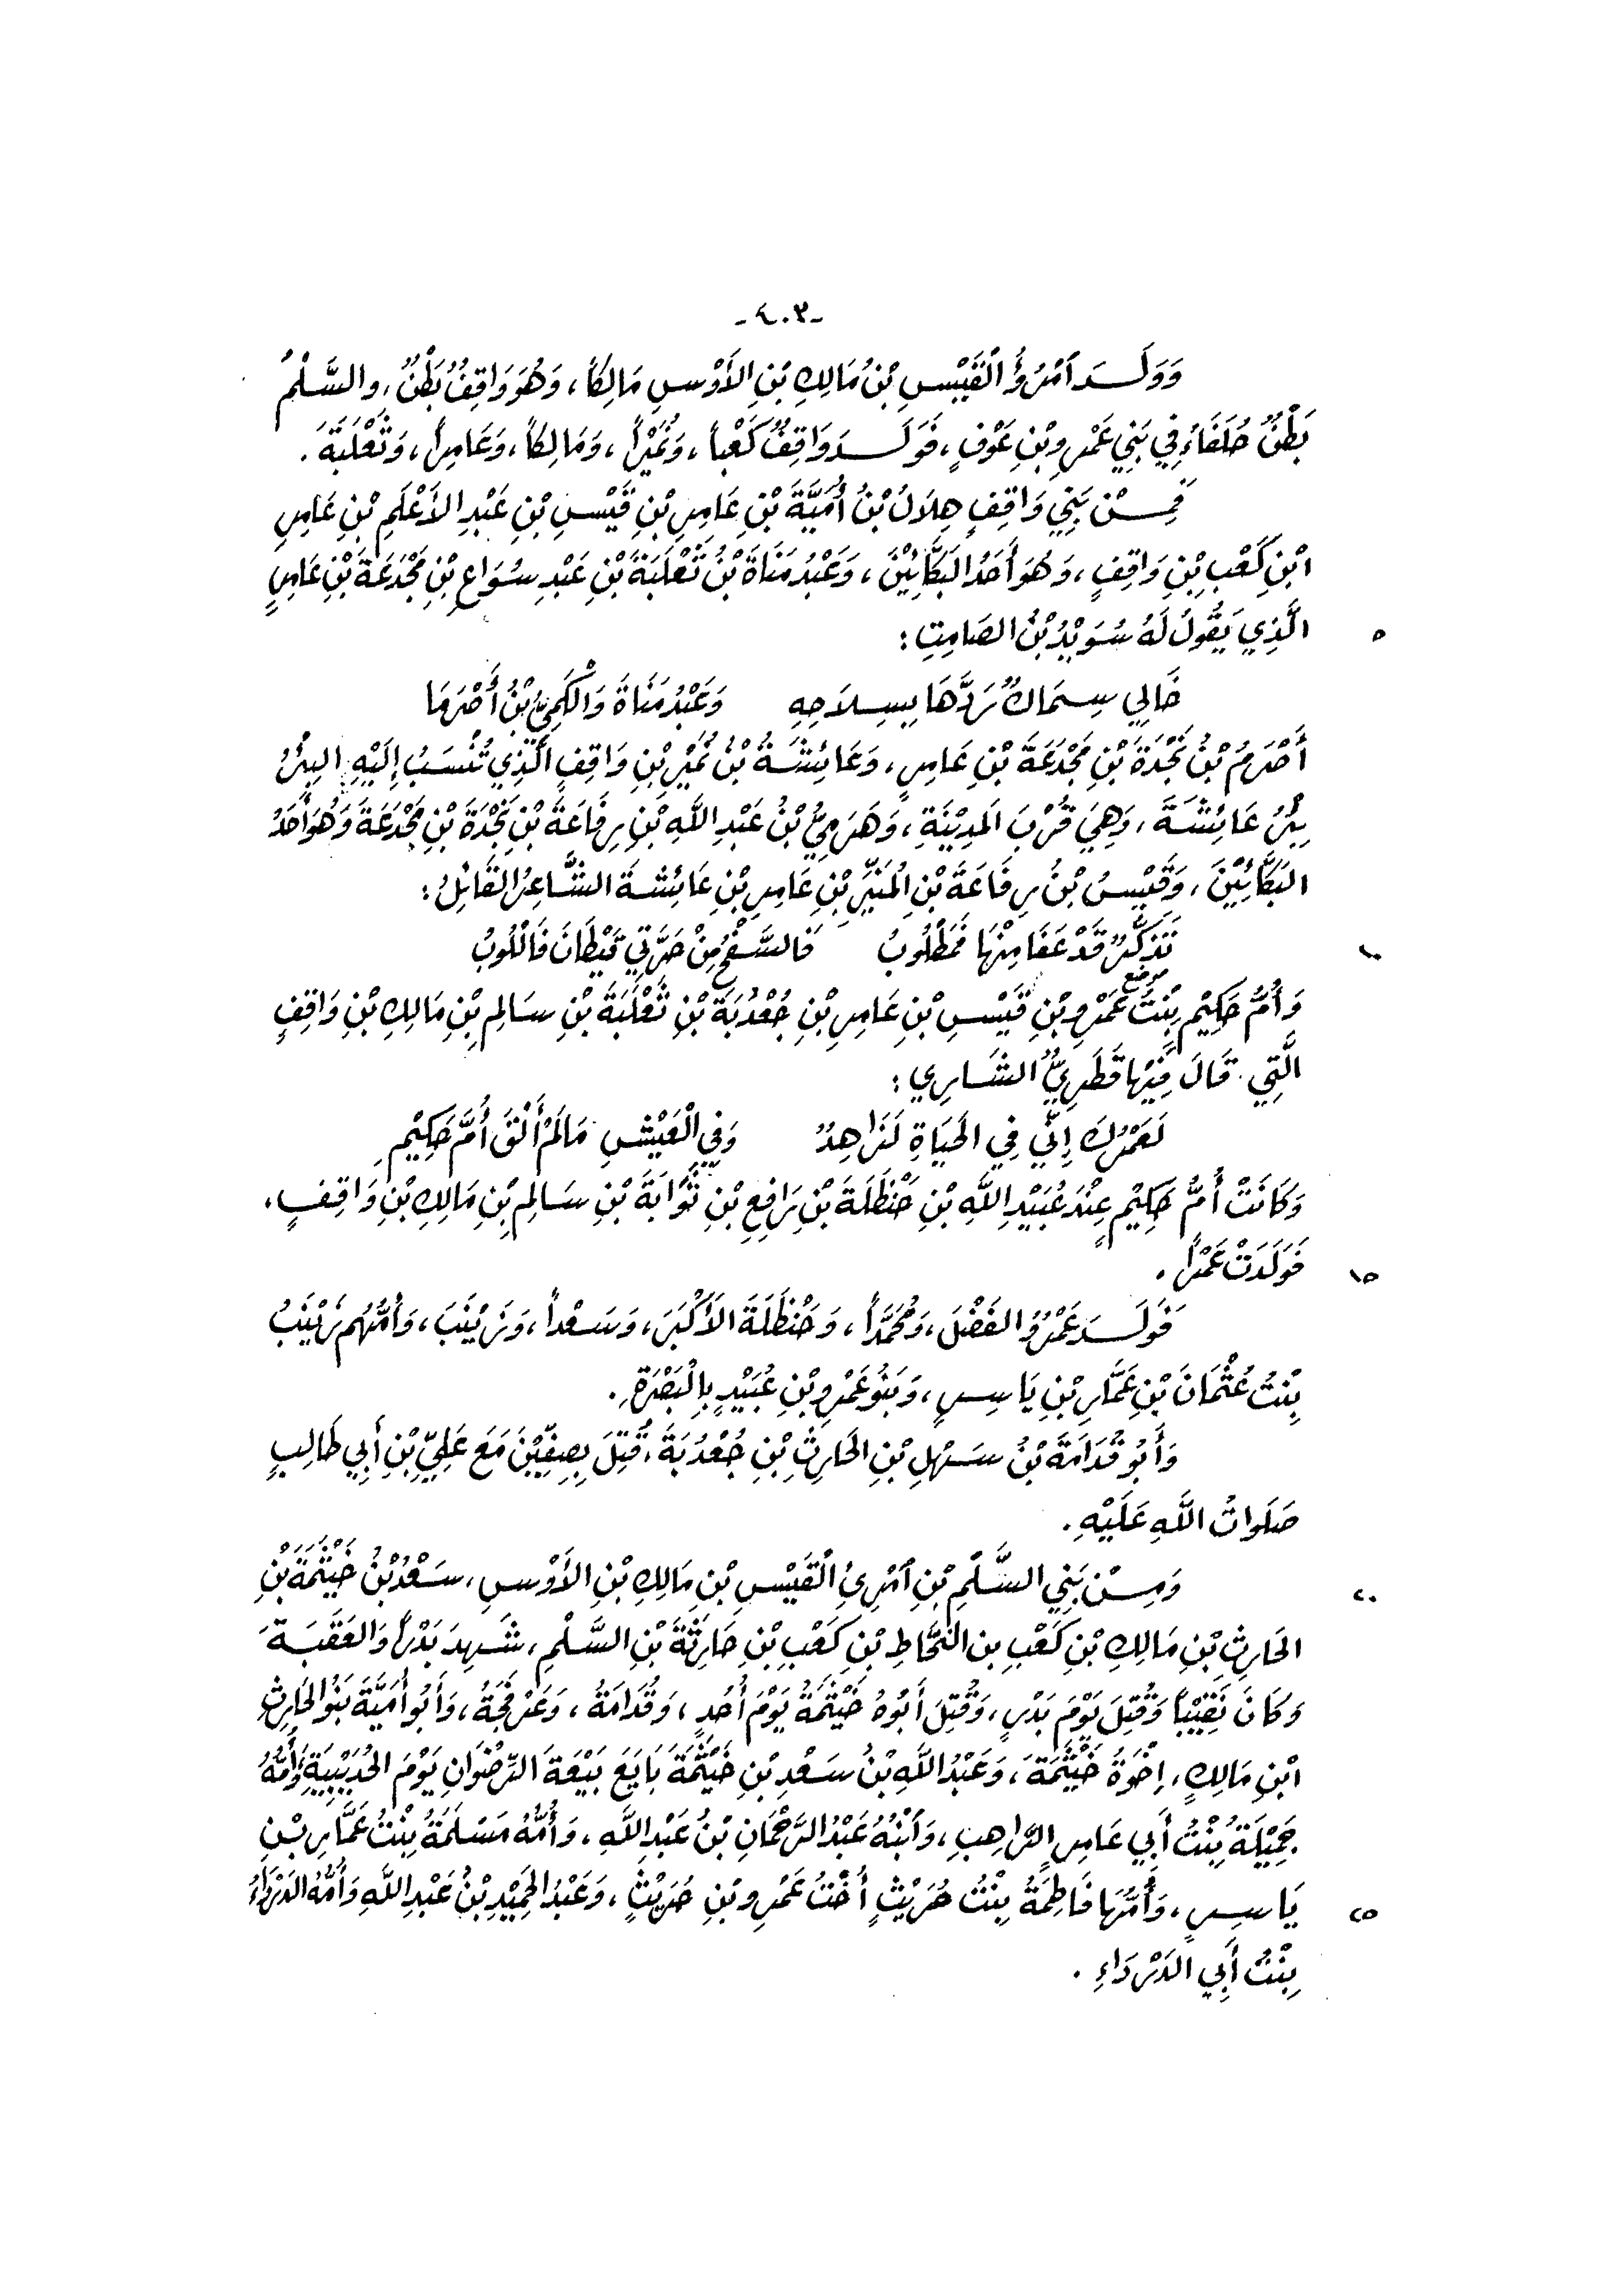 -٤٠٣-
وَوَلَـدَ ٱمْرُؤُ ٱلْقَيْسِ بْنُ مَالِكِ بْنِ الأَوْسِ مَالِكاً، وَهُوَ وَاقِفُ بَطْنٌ، والسَّلْمُ
بَطْنٌ حُلَفَاءُ فِي بَنِي عَمْرِو بْنِ عَوْفٍ، فَوَلَـدَ وَاقِفٌ كَعْباً، وَنُمَيْراً، وَمَالِكاً، وَعَامِراً، وَثَعْلَبَةَ.
فَمِـنْ بَنِي وَاقِفٍ هِلَالُ بْنُ أُمَيَّةَ بْنِ عَامِرِ بْنِ قَيْسِ بْنِ عَبْدِ الأَعْلَمِ بْنِ عَامِرِ
ابْنِ كَعْبِ بْنِ وَاقِفٍ، وَهُوَ أَحَدُ البَكَّائِيْنَ، وَعَبْدُ مَنَاةَ بْنُ ثَعْلَبَةَ بْنِ عَبْدِ سُوَاعِ بْنِ مَجْدَعَةَ بْنِ عَامِرٍ
الَّذِي يَقُولُ لَهُ سُوَيْدُ بْنُ الصَامِتِ: ٥
خَالِي سِمَاكٌ رَدَّهَا بِسِلاَحِهِ وَعَبْدُ مَنَاةَ وَالْكَمِيُّ بْنُ أَصْرَمَا
أَصْرَمُ بْنُ نَجْدَةَ بْنِ مَجْدَعَةَ بْنِ عَامِرٍ، وَعَائِشَةُ بْنُ نُمَيْرِ بْنِ وَاقِفٍ الَّذِي تُنْسَبُ إِلَيْهِ البِئْرُ
بِئْرُ عَائِشَةَ، وَهِيَ قُرْبَ المَدِيْنَةِ، وَهَرَمِيُّ بْنُ عَبْدِ اللَّهِ بْنِ رِفَاعَةَ بْنِ نَجْدَةَ بْنِ مَجْدَعَةَ وَهُوَ أَحَدُ
البَكَّائِيْنَ، وَقَيْسُ بْنُ رِفَاعَةَ بْنِ المُنَيِّرِ بْنِ عَامِرِ بْنِ عَائِشَةَ الشَّاعِرُ القَائِلُ:
تَذَكَّرْ قَدْ عَفَا مِنْهَا فَمَطْلُوبُ فَالسَّفْحُ مِنْ حَرَّتِي قَيْطَانَ فَاللُّوبُ ١٠
موضع
وَأُمُّ حَكِيْمٍ بِنْتُ عَمْرِو بْنِ قَيْسِ بْنِ عَامِرِ بْنِ جُعْدُبَةَ بْنِ ثَعْلَبَةَ بْنِ سَالِمِ بْنِ مَالِكِ بْنِ وَاقِفٍ
الَّتِي قَالَ فِيْهَا قَطَرِيٌّ الشَارِي:
لَعَمْرُكَ إِنِّي فِي الحَيَاةِ لَزَاهِدٌ وَفِي الْعَيْشِ مَالَمْ أَلْقَ أُمَّ حَكِيْمِ
وَكَانَتْ أُمُّ حَكِيْمٍ عِنْدَ عُبَيْدِ اللَّهِ بْنِ حَنْظَلَةَ بْنِ رَافِعِ بْنِ ثَوَابَةَ بْنِ سَالِمِ بْنِ مَالِكِ بْنِ وَاقِفٍ،
فَوَلَدَتْ عَمْراً. ١٥
فَوَلَـدَ عَمْرٌو الفَضْلَ، وَمُحَمَّداً، وَحَنْظَلَةَ الأَكْبَرَ، وَسَعْداً، وَزَيْنَبَ، وَأُمُّهُم زَيْنَبُ
بِنْتُ عُثْمَانَ بْنِ عَمَّارِ بْنِ يَاسِرٍ، وَبَنُو عَمْرِو بْنِ عُبَيْدٍ بِالْبَصْرَةِ.
وَأَبُو قُدَامَةَ بْنُ سَهْلِ بْنِ الحَارِثِ بْنِ جُعْدُبَةَ، قُتِلَ بِصِفِّيْنَ مَعَ عَلِيِّ بْنِ أَبِي طَالِبٍ
صَلَواتُ اللَّهِ عَلَيْهِ.
وَمِـنْ بَنِي السَّلْمِ بْنِ ٱمْرِئِ ٱلْقَيْسِ بْنِ مَالِكِ بْنِ الأَوْسِ، سَعْدُ بْنُ خَيْثَمَةَ بْنِ ٢٠
الحَارِثِ بْنِ مَالِكِ بْنِ كَعْبِ بنِ النَّحَّاطِ بْنِ كَعْبِ بْنِ حَارِثَةَ بْنِ السَّلْمِ، شَهِدَ بَدْراً وَالعَقَبَةَ
وَكَانَ نَقِيْباً وَقُتِلَ يَوْمَ بَدْرٍ، وَقُتِلَ أَبُوهُ خَيْثَمَةُ يَوْمَ أُحُدٍ، وَقُدَامَةُ، وَعَرْفَجَةُ، وَأَبُو أُمَيَّةَ بَنُو الحَارِثِ
ابْنِ مَالِكٍ، إِخْوَةُ خَيْثَمَةَ، وَعَبْدُ اللَّهِ بْنُ سَعْدِ بْنِ خَيْثَمَةَ بَايَعَ بَيْعَةَ الرِّضْوَانِ يَوْمَ الحُدَيْبِيَةِ وَأُمُّهُ
جَمِيْلَةُ بِنْتُ أَبِي عَامِرٍ الرَّاهِبِ، وَٱبْنُهُ عَبْدُ الرَّحْمَانِ بْنُ عَبْدِ اللَّهِ، وَأُمُّهُ مَسْلَمَةُ بِنْتُ عَمَّارِ بْنِ
يَاسِرٍ، وَأُمُّهَا فَاطِمَةُ بِنْتُ حُرَيْثٍ أُخْتُ عَمْرِو بْنِ حُرَيْثٍ، وَعَبْدُ الحَمِيْدِ بْنُ عَبْدِ اللَّهِ وَأُمُّهُ الدَرْدَاءُ ٢٥
بِنْتُ أَبِي الدَرْدَاءِ.